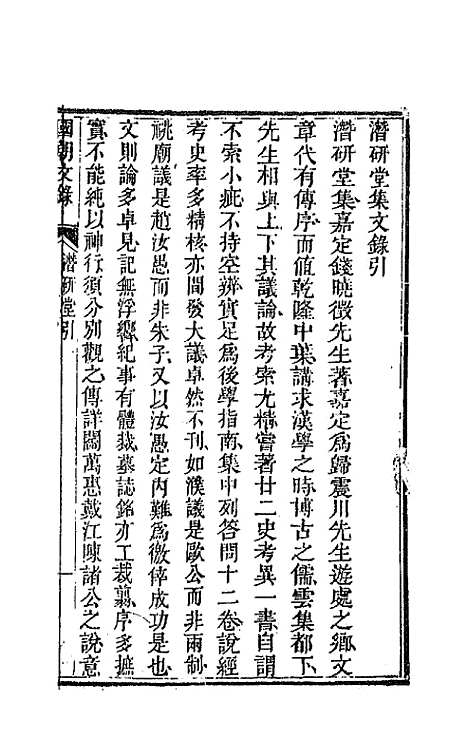 潛研堂集文錄引
潛研堂集嘉定錢曉徵先生著嘉定爲歸震川先生遊處之鄉文
章代有傳序而値乾隆中葉講求漢學之時博古之儒雲集都下
先生相與上下其議論故考索尤精嘗著廿二史考異一書自謂
不索小疵不持空辨實足爲後學指南集中列答問十二卷說經
考史率多精核亦間發大議卓然不刊如濮議是歐公而非兩制
祧廟議是趙汝愚而非朱子又以汝愚定內難爲徼倖成功是也
文則論多卓見記無浮響紀事有體裁墓誌銘亦工裁翦序多摭
實不能純以神行須分別觀之傳詳闔萬惠戴江陳諸公之說意
國朝文錄
潛研堂引
一